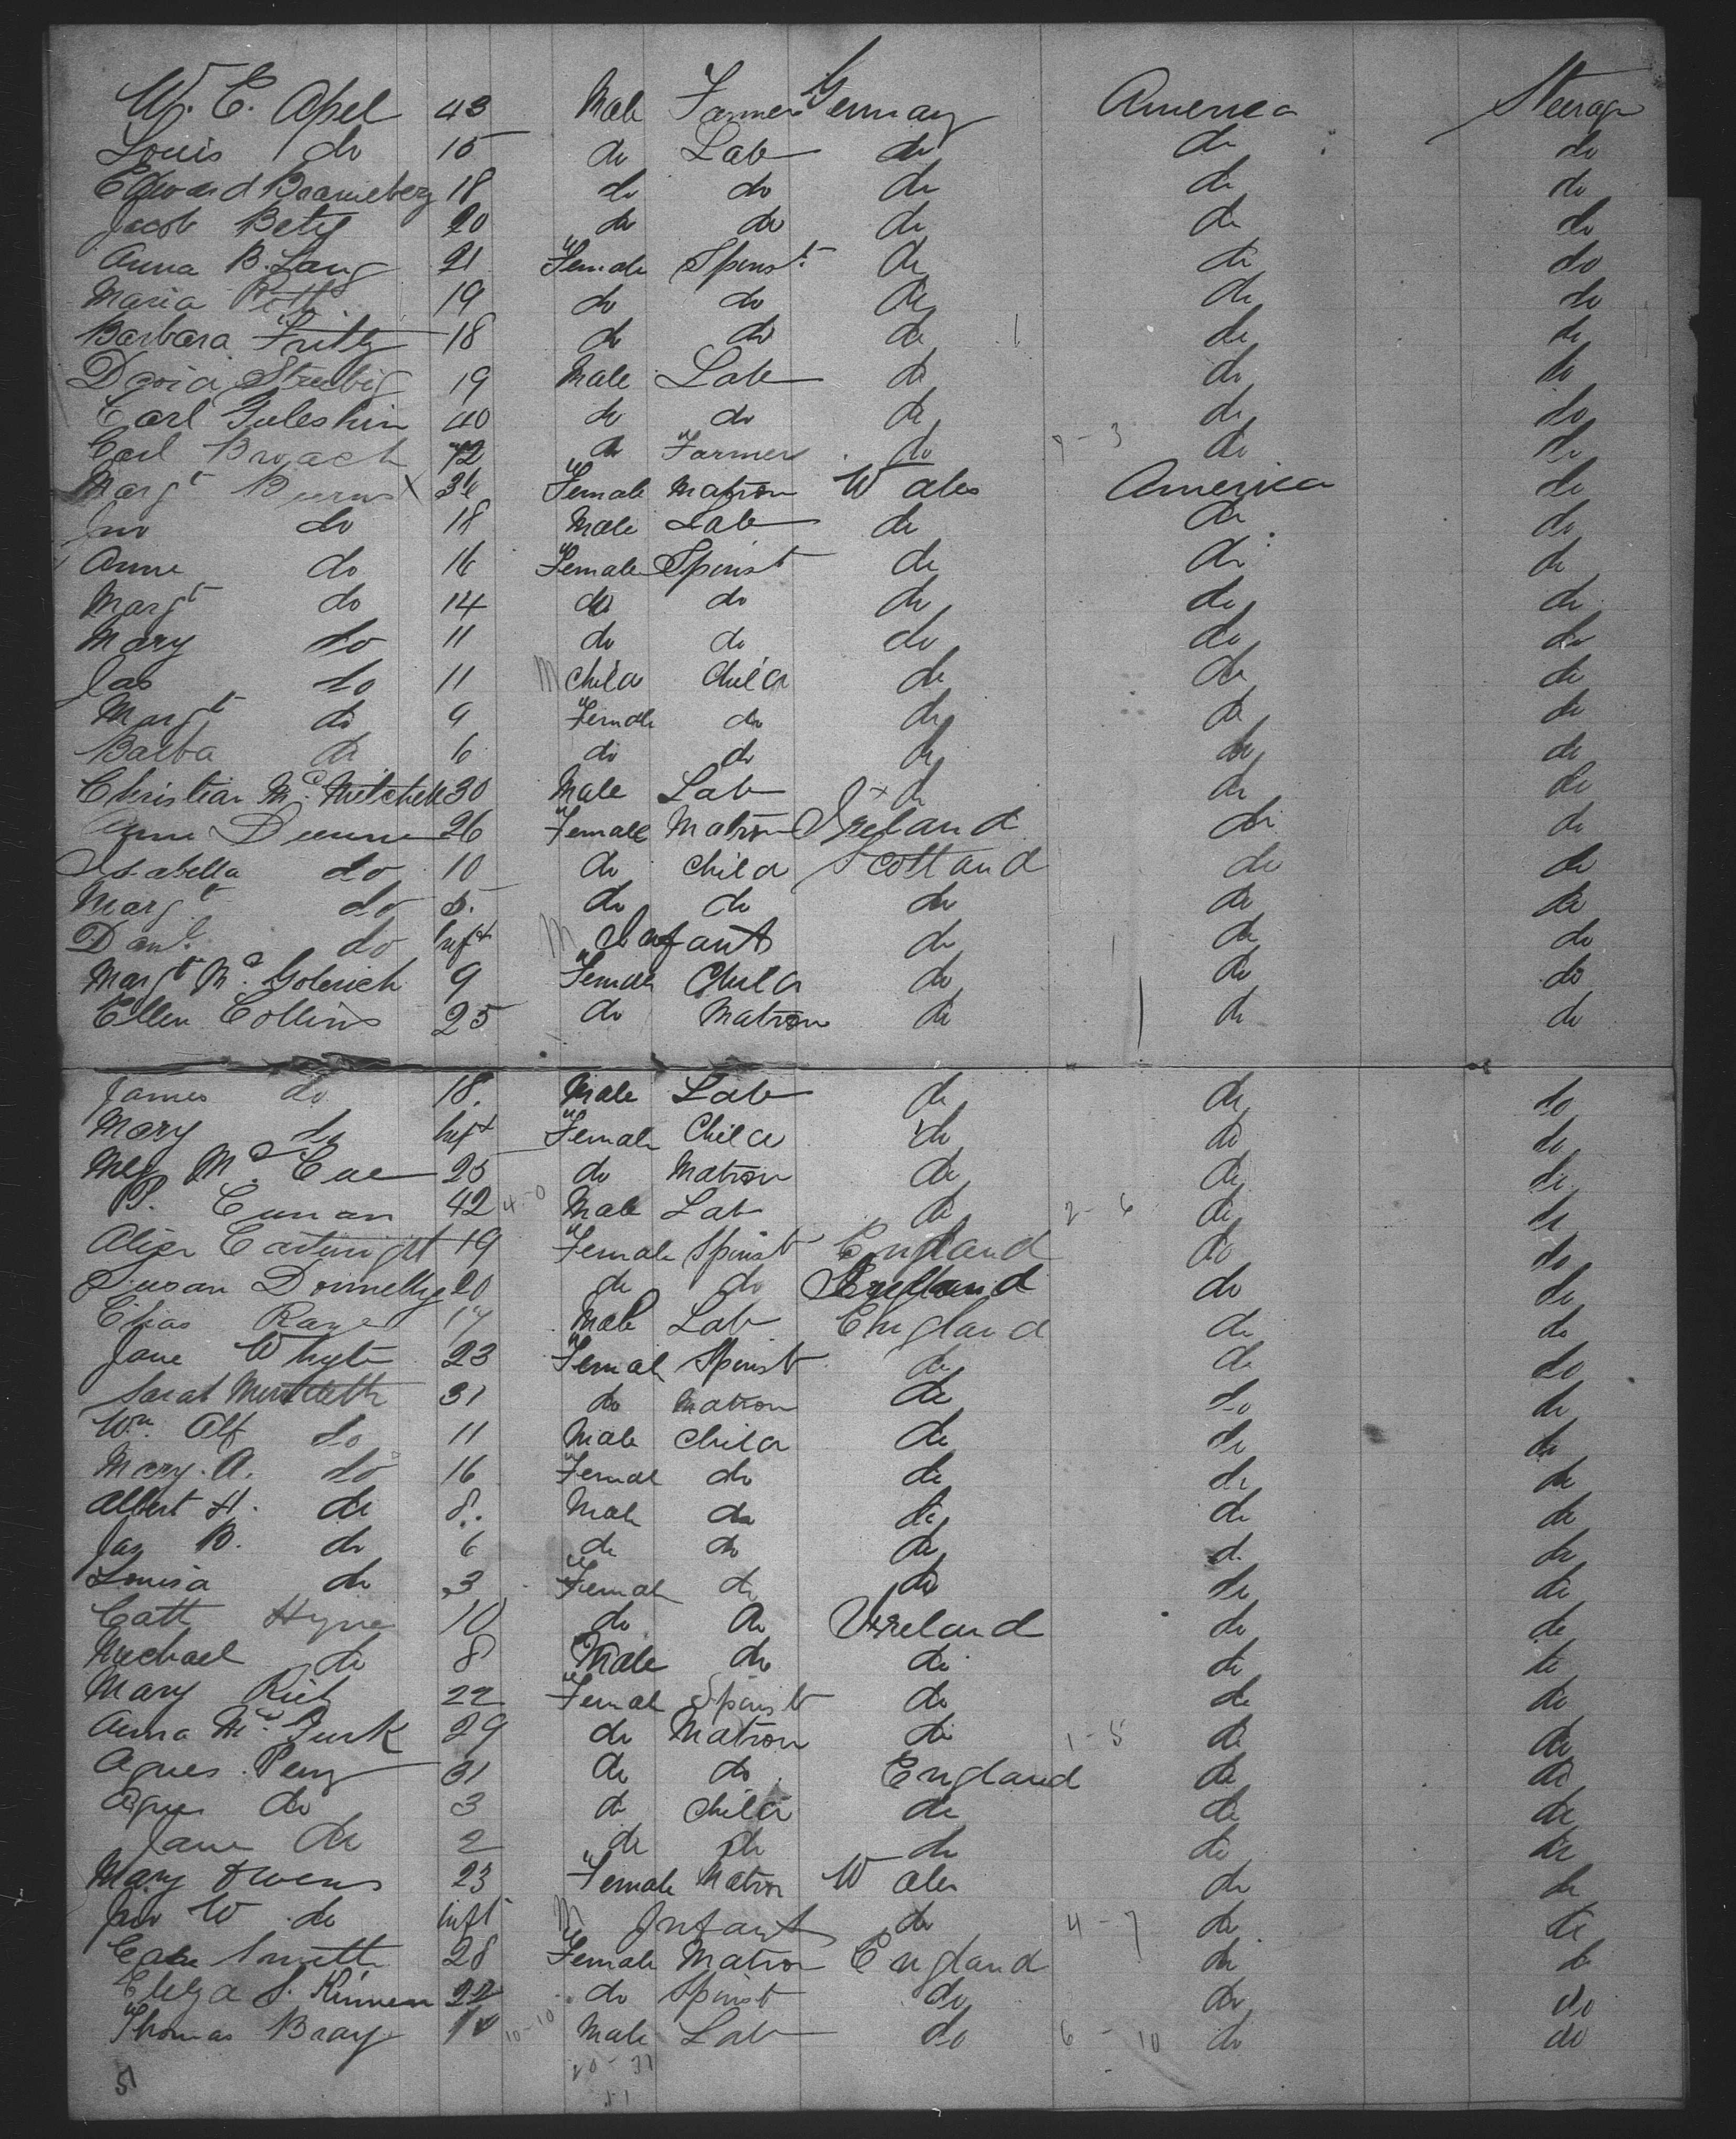 W. E. Apel 43 Male Farmer Germany America Steerage
Louis do 15 do Lab do do do
Edward 18 do do do do do
Jacob Betz 20 do do do do do
Anna B. Lang 21 Female Spinst do do do
Maria 19 do do do do do
Barbara Fritz 18 do do do do do
David 19 Male Lab do do do
Carl 40 do do do do do
Carl do Farmer do 9-3 do do
Margt Burns X Female Matron Wales America do
Jno do 18 Male Lab do do do
Anne do 16 Female Spinst do do do
Margt do 14 do do do do do
Mary do 11 do do do do do
Jas do 11 M Child Child do do do
Margt do 9 Female do do do do
Barba do 6 do do do do do
Christian Mc Mitchell 30 Male Lab do do do
Anne Dunne 26 Female Matron Ireland do do
Isabella do 10 do Child Scotland do do
Margt do 5 do do do do do
Danl. do Inft M Infant do do do
Margt Mc 9 Female Child do do do
Ellen Collins 25 do Matron do do do
James do 18. Male Lab do do do
Mary do Inft Female Child do do do
Mc 25 do Matron do do do
P. 42 4-0 Male Lab do 2-6 do do
Cartwright 19 Female Spinst England do do
Susan Donnelly 20 do do Ireland do do
Male Lab England do do
Jane Whyte 23 Female Spinst do do do
Sarah Merideth 31 do Matron do do do
Wm. Alf do 11 Male Child do do do
Mary. A. do 16 Female do do do do
Albert H. do 8. Male do do do do
Jas B. do 6 do do do do do
Louisa do 3 Female do do do do
Cath 10 do do Ireland do do
Michael do 8 Male do do do do
Mary 22 Female Spinst do do do
Anna Mc Gurk 29 do Matron do 1-5 do do
Agnes Perry 31 do do England do do
Agnes do 3 do Child do do do
Jane do 2 do do do do do
Mary Owens 23 Female Matron Wales do do
Jno W do inft M Infant do 4-7 do do
Smith 28 Female Matron England do do
Eliza S. 22 do Spinst do do do
Thomas Bray 10-10 Male Lab do 6-10 do do
51 20-31
51